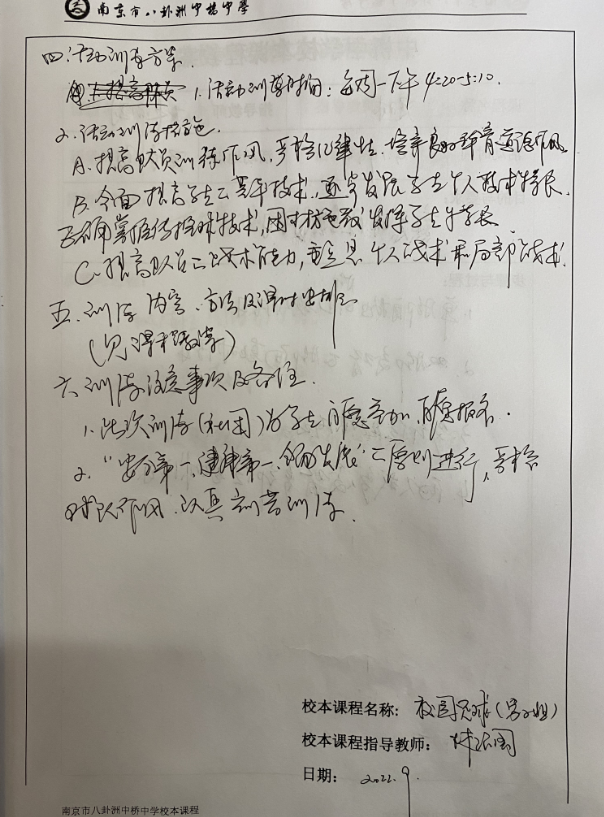 南京市八卦洲中桥中学
四、活动训练方案
1、活动训练时间：每周一下午4:20-5:10.
2、活动训练措施.
A、提高队员训练作风，严格纪律性，培养良好体育道德作风。
B、全面提高学生的基本技术，逐步发展学生个人技术特长.
掌握传接球技术，因材施教发挥学生特长
C、提高队员的战术能力，重点是个人战术和局部战术.
五、训练内容、方法及课时安排
(见课程教学)
六、训练注意事项及备注.
1、此次训练(社团)为学生自愿参加，自愿报名.
2、"安全第一、健康第一、全面发展"的原则进行，严格
球队作风，认真刻苦训练.
校本课程名称：校园足球(男子组)
校本课程指导教师：
日期： 2022.9.
南京市八卦洲中桥中学校本课程